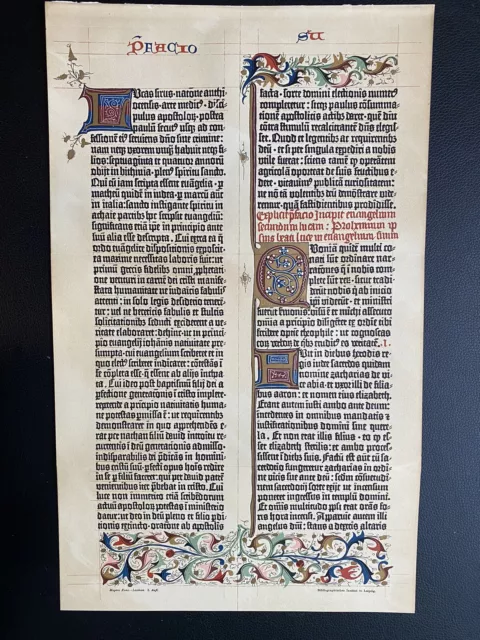 Prefacio
Su
Lucas sirus · nacōne anthi-
ocensis · arte medic⁹ · disci-
pulus apostolorū · postea
paulū secut⁹ usq; ad con-
fessionē ei⁹ serviens dño sine crimine:
nam neq; uxorem unq̄ habuit neq; fi-
lios: septuaginta et quatuor annorū
obijt in bithinia · plen⁹ spiritu sancto.
Qui cū iam scripta essent euāgelia · p
matheū quidē in iudea · p marcū autē
in italia: sancto instigante spiritu in
achaie partib⁹ hoc scripsit euangeliū:
significans etiā ipē in principio ante
suū alia esse descripta. Cui extra ea q̄
ordo euāgelice dispositionis exposcit ·
ea maxime necessitas laboris fuit: ut
primū grecis fidelib⁹ omni ꝓphetati-
one venturi in carnē dei cristi manife-
stata humanitate ne iudaicis fabulis
attenti: in solo legis desiderio tenerē-
tur: vel ne hereticis fabulis et stultis
solicitationib⁹ seducti excideret a ve-
ritate elaboraret: dehinc · ut in princi-
pio euangelij iohānis nativitate pre-
sumpta · cui euangeliū scriberet et in
quo elect⁹ scriberet indicaret: cōtestās ī
se cōpleta esse · q̄ essent ab alijs inchoa-
ta. Cui ideo post baptismū filij dei a
ꝑfectione generationis ī cristo implete ·
repetende a principio nativitatis huma-
ne potestas ꝑmissa ē: ut requirentib⁹
demonstraret in quo apprehendēs e-
rat per nathan filiū david introitu re-
currentis ī deū generationis admisso ·
indisparabilis dei p̄dicās in hominib⁹
cristū suū · ꝑfecti opus hoīs redire
in se ꝑ filiū faceret: qui per david patrē
venientibus iter p̄bebat in cristo. Cui
luce non immerito etiā scribendorum
actuū apostolicorū potestas ī ministerio
datur: ut deo in deū pleno et filio ꝑdi-
tionis extincto · oratione ab apostolis
facta · sorte domini electionis numer⁹
compleretur: sicq; paulus cōsumma-
tionē apostolicis actib⁹ daret · quē diu
cōtra stimulū recalcitrantē dñs elegis-
set. Quod et legentib⁹ ac requirentib⁹
deū · et si per singula expediri a nobis
utile fuerat: sciens tamē q̄ operantem
agricolā oporteat de suis fructibus e-
dere · vitavim⁹ publicā curiositatem:
ne nō tā volentib⁹ deū demōstrare vide-
remur · quā fastidientibus prodidisse.
Explicit ꝓfacio Incipit euangelium
secundum lucam: Prohemium ip-
sius beati luce in euangelium suum
Quoniā quidē multi co-
nati sūt ordinare nar-
rationes q̄ ī nobis com-
plete sūt rerū · sicut tradi-
derūt nobis q̄ ab inicio
ipi viderūt · et ministri
fuerūt sermonis: visū ē et michi assecuto
omīa a principio diligēter ex ordīe tibi
scribere optīe theophile: ut cognoscas
eorū verborū de q̄b⁹ erudit⁹ es veritatē. .I.
Fuit in dieb⁹ herodis re-
gis iude sacerdos quidam
nomine zacharias de vi-
ce abia · et uxor illi de filia-
bus aaron: et nomen eius elizabeth.
Erant autem iusti ambo ante deum:
incedentes in omnibus mandatis et
iustificationibus domini sine quere-
la. Et non erat illis filius · eo q̄ es-
set elizabeth sterilis: et ambo proces-
sissent ī dieb⁹ suis. Factū est autē cū sa-
cerdotio fungeretur zacharias in ordi-
ne vicis sue ante deū: scdm cōsuetudi-
nem sacerdotij sorte exijt ut incensum
poneret ingressus in templū domini.
Et omīs multitudo ppli erat orās fo-
ris hora incensi. Apparuit autem illi
angelus dñi: stans a dextris altaris
Meyers Konv.-Lexikon 6. Aufl.
Bibliographisches Institut in Leipzig.